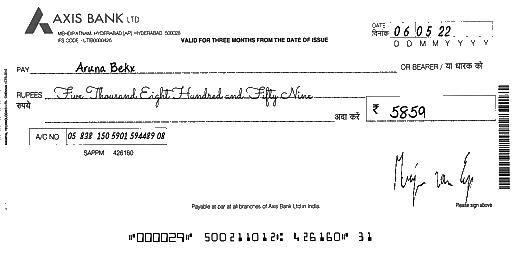 AXIS BANK LTD
MEHDIPATNAM, HYDERABAD [AP] HYDERABAD 500028
IFS CODE - UTIB0000426
VALID FOR THREE MONTHS FROM THE DATE OF ISSUE
DATE
दिनांक 06 05 22
D D M M Y Y Y Y
PAY Aruna Bekx OR BEARER / या धारक को
RUPEES Five Thousand Eight Hundred and Fifty Nine
रुपये अदा करें ₹ 5859
A/C NO 05 838 150 5901 594489 08
SAPPM 426160
Payable at par at all branches of Axis Bank Ltd in India.
Please sign above
"000029" 500211012: 426160" 31